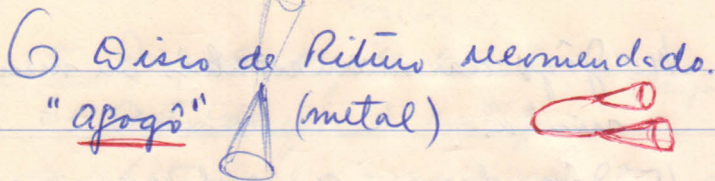 6 Disco de Ritmo recomendado.
"agogô" (metal)